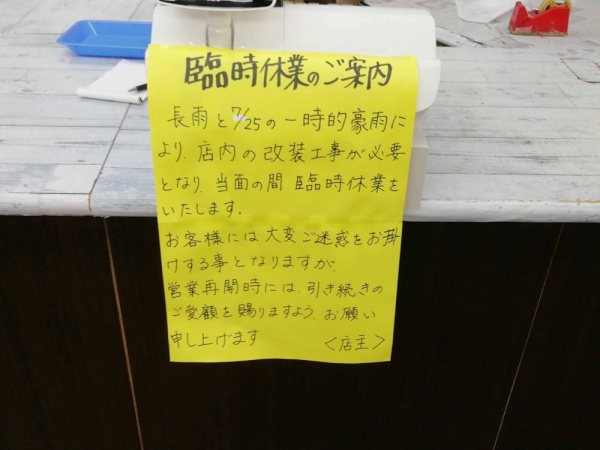 臨時休業のご案内
長雨と7/25の一時的豪雨に
より、店内の改装工事が必要
となり、当面の間 臨時休業を
いたします。
お客様には大変ご迷惑をお掛
けする事となりますが、
営業再開時には、引き続きの
ご愛顧を賜りますよう、お願い
申し上げます 〈店主〉